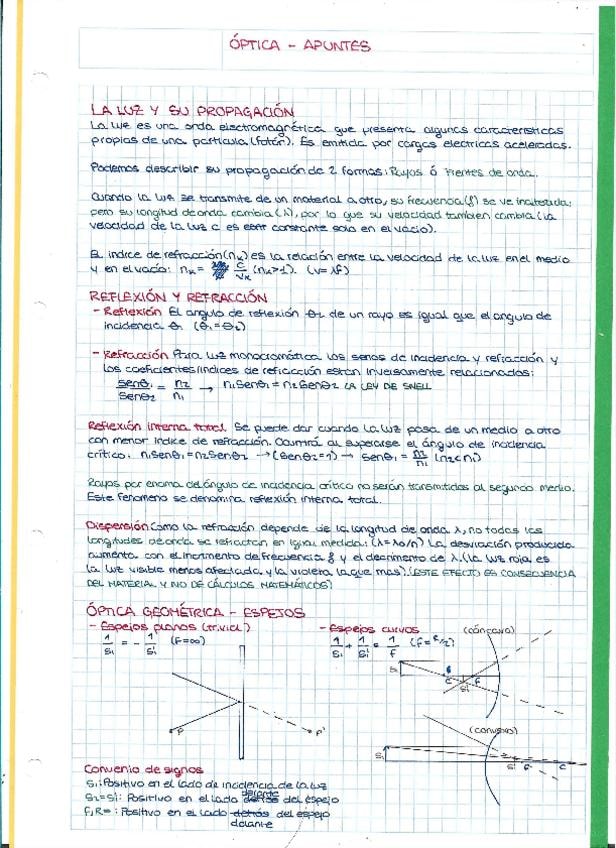 ÓPTICA - APUNTES
LA LUZ Y SU PROPAGACIÓN
La luz es una onda electromagnética que presenta algunas características
propias de una partícula (fotón). Es emitida por cargas electricas aceleradas.
Podemos describir su propagación de 2 formas: Rayos ó Frentes de onda.
Cuando la luz se transmite de un material a otro, su frecuencia (f) se ve inalterada;
pero su longitud de onda cambia (λ), por lo que su velocidad tambien cambia (la
velocidad de la luz c es constante solo en el vacío).
El indice de refracción (nₓ) es la relación entre la velocidad de la luz en el medio
y en el vacío: nₓ = c/vₓ (nₓ>1). (v=λf)
REFLEXIÓN Y REFRACCIÓN
- Reflexión El angulo de reflexión θ₂ de un rayo es igual que el angulo de
incidencia θ₁ (θ₁=θ₂)
- Refracción Para luz monocromática los senos de incidencia y refracción y
los coeficientes/indices de refracción estan inversamente relacionados:
senθ₁/senθ₂ = n₂/n₁ → n₁senθ₁ = n₂senθ₂ LA LEY DE SNELL
Reflexión interna total Se puede dar cuando la luz pasa de un medio a otro
con menor indice de refracción. Ocurrirá al superarse el ángulo de incidencia
crítico: n₁senθ₁=n₂senθ₂ → (senθ₂=1) → senθ₁ = n₂/n₁ (n₂<n₁)
Rayos por encima del ángulo de incidencia crítico no serán transmitidos al segundo medio.
Este fenomeno se denomina reflexión interna total.
Dispersión Como la refracción depende de la longitud de onda λ, no todas las
longitudes de onda se refractan en igual medida: (λ=λ₀/n) La desviación producida
aumenta con el incremento de frecuencia f y el decrimento de λ. (La luz roja es
la luz visible menos afectada y la violeta la que mas). (ESTE EFECTO ES CONSECUENCIA
DEL MATERIAL Y NO DE CÁLCULOS MATEMÁTICOS)
ÓPTICA GEOMÉTRICA - ESPEJOS
- Espejos planos (trivial)
1/s₁ = - 1/s₁' (F=∞)
P
P'
- Espejos curvos
1/s₁ + 1/s₁' = 1/F (F=R/2)
(cóncavo)
S₁
C
F
S₁'
(convexo)
S₁
S₁'
F
C
Convenio de signos
S₁: Positivo en el lado de incidencia de la luz
S₂=S₁': Positivo en el lado detrás delante del espejo
F, R=: Positivo en el lado detrás del espejo
delante